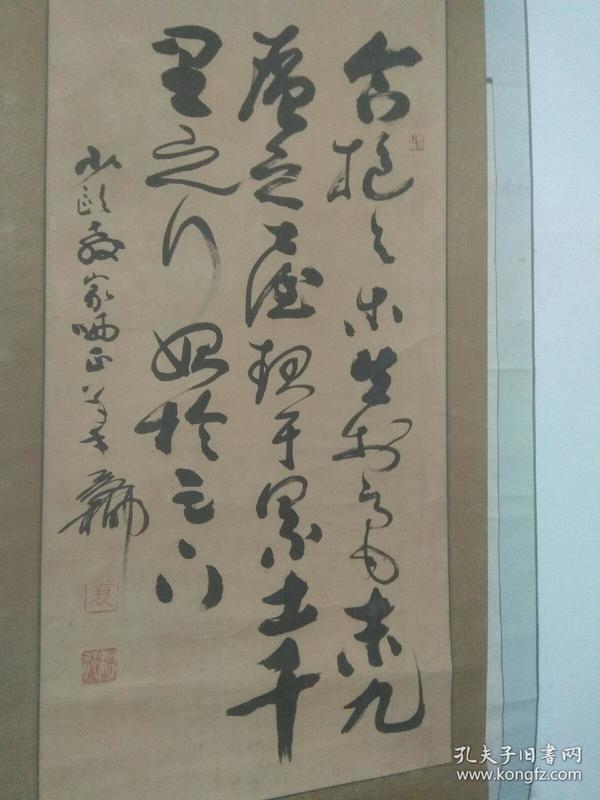 合抱之木生於毫末九
層之臺起于累土千
里之行始於足下
家哂正
夏
孔夫子旧书网
www.kongfz.com